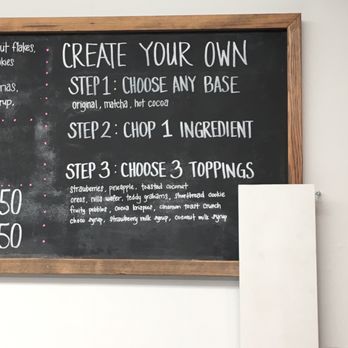 CREATE YOUR OWN
ut flakes,
okies
STEP 1: CHOOSE ANY BASE
original, matcha, hot cocoa
STEP 2: CHOP 1 INGREDIENT
STEP 3: CHOOSE 3 TOPPINGS
strawberries, pineapple, toasted coconut
oreos, nilla wafer, teddy grahams, shortbread cookie
fruity pebbles, cocoa krispies, cinnamon toast crunch
choco syrup, strawberry milk syrup, coconut milk syrup
50
50